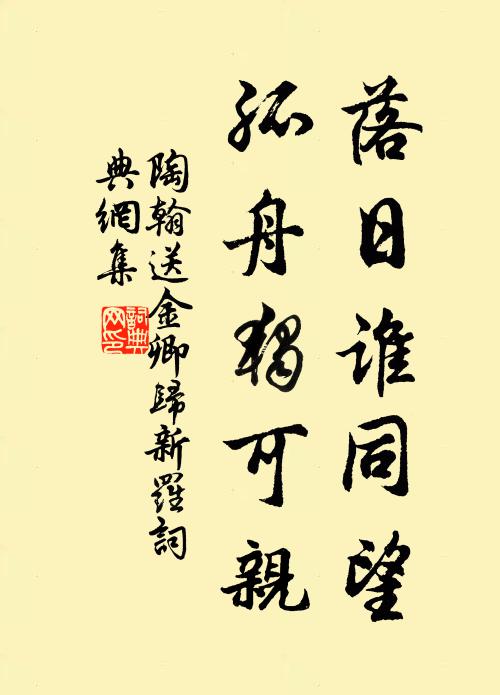 落日誰同望
孤舟獨可親
陶翰送金卿歸新羅詞
典網集
詞典
网印